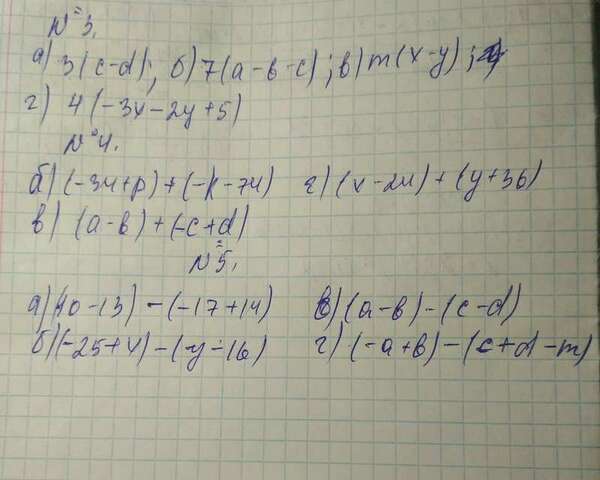 №3.
а) 3(c-d); б) 7(a-b-c); в) m(x-y);
г) 4(-3x-2y+5)
№4.
б) (-34+p)+(-k-74) г) (x-24)+(y+36)
в) (a-b)+(-c+d)
№5.
а) (10-13)-(-17+14) в) (a-b)-(c-d)
б) (-25+y)-(-y-16) г) (-a+b)-(c+d-m)